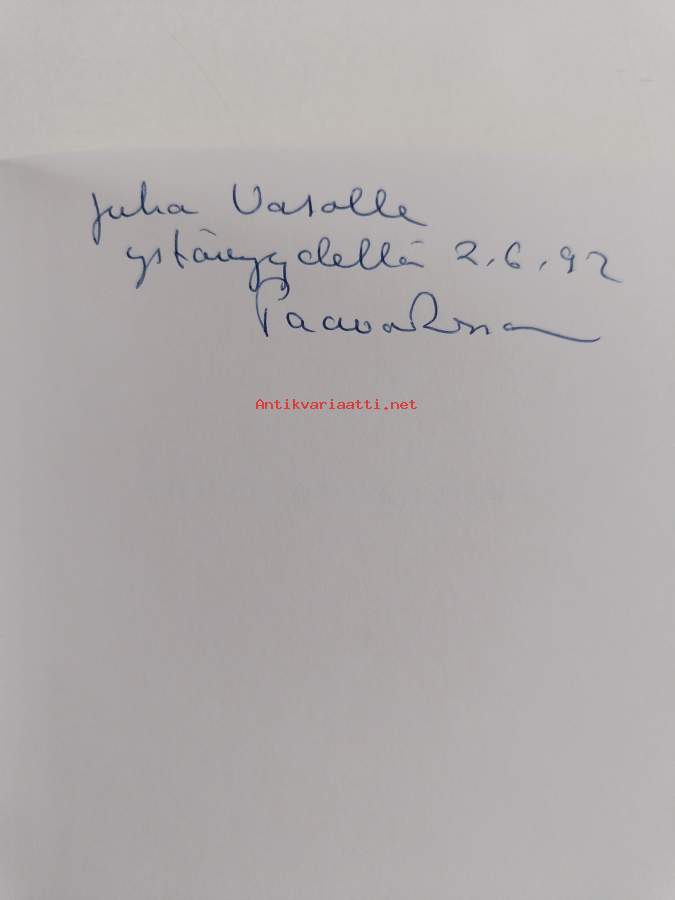 Juha Vasolle
ystävyydellä 2.6.92
Paavo
Antikvariaatti.net